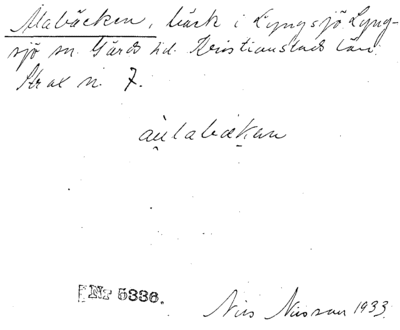 Mabäcken, bäck i Lyngsjö Lyng-
sjö sn. Gärds hd. Kristianstads län
Str ax n. 7.
äulabækan
Nr 5336.
Nils Nilsson 1933.